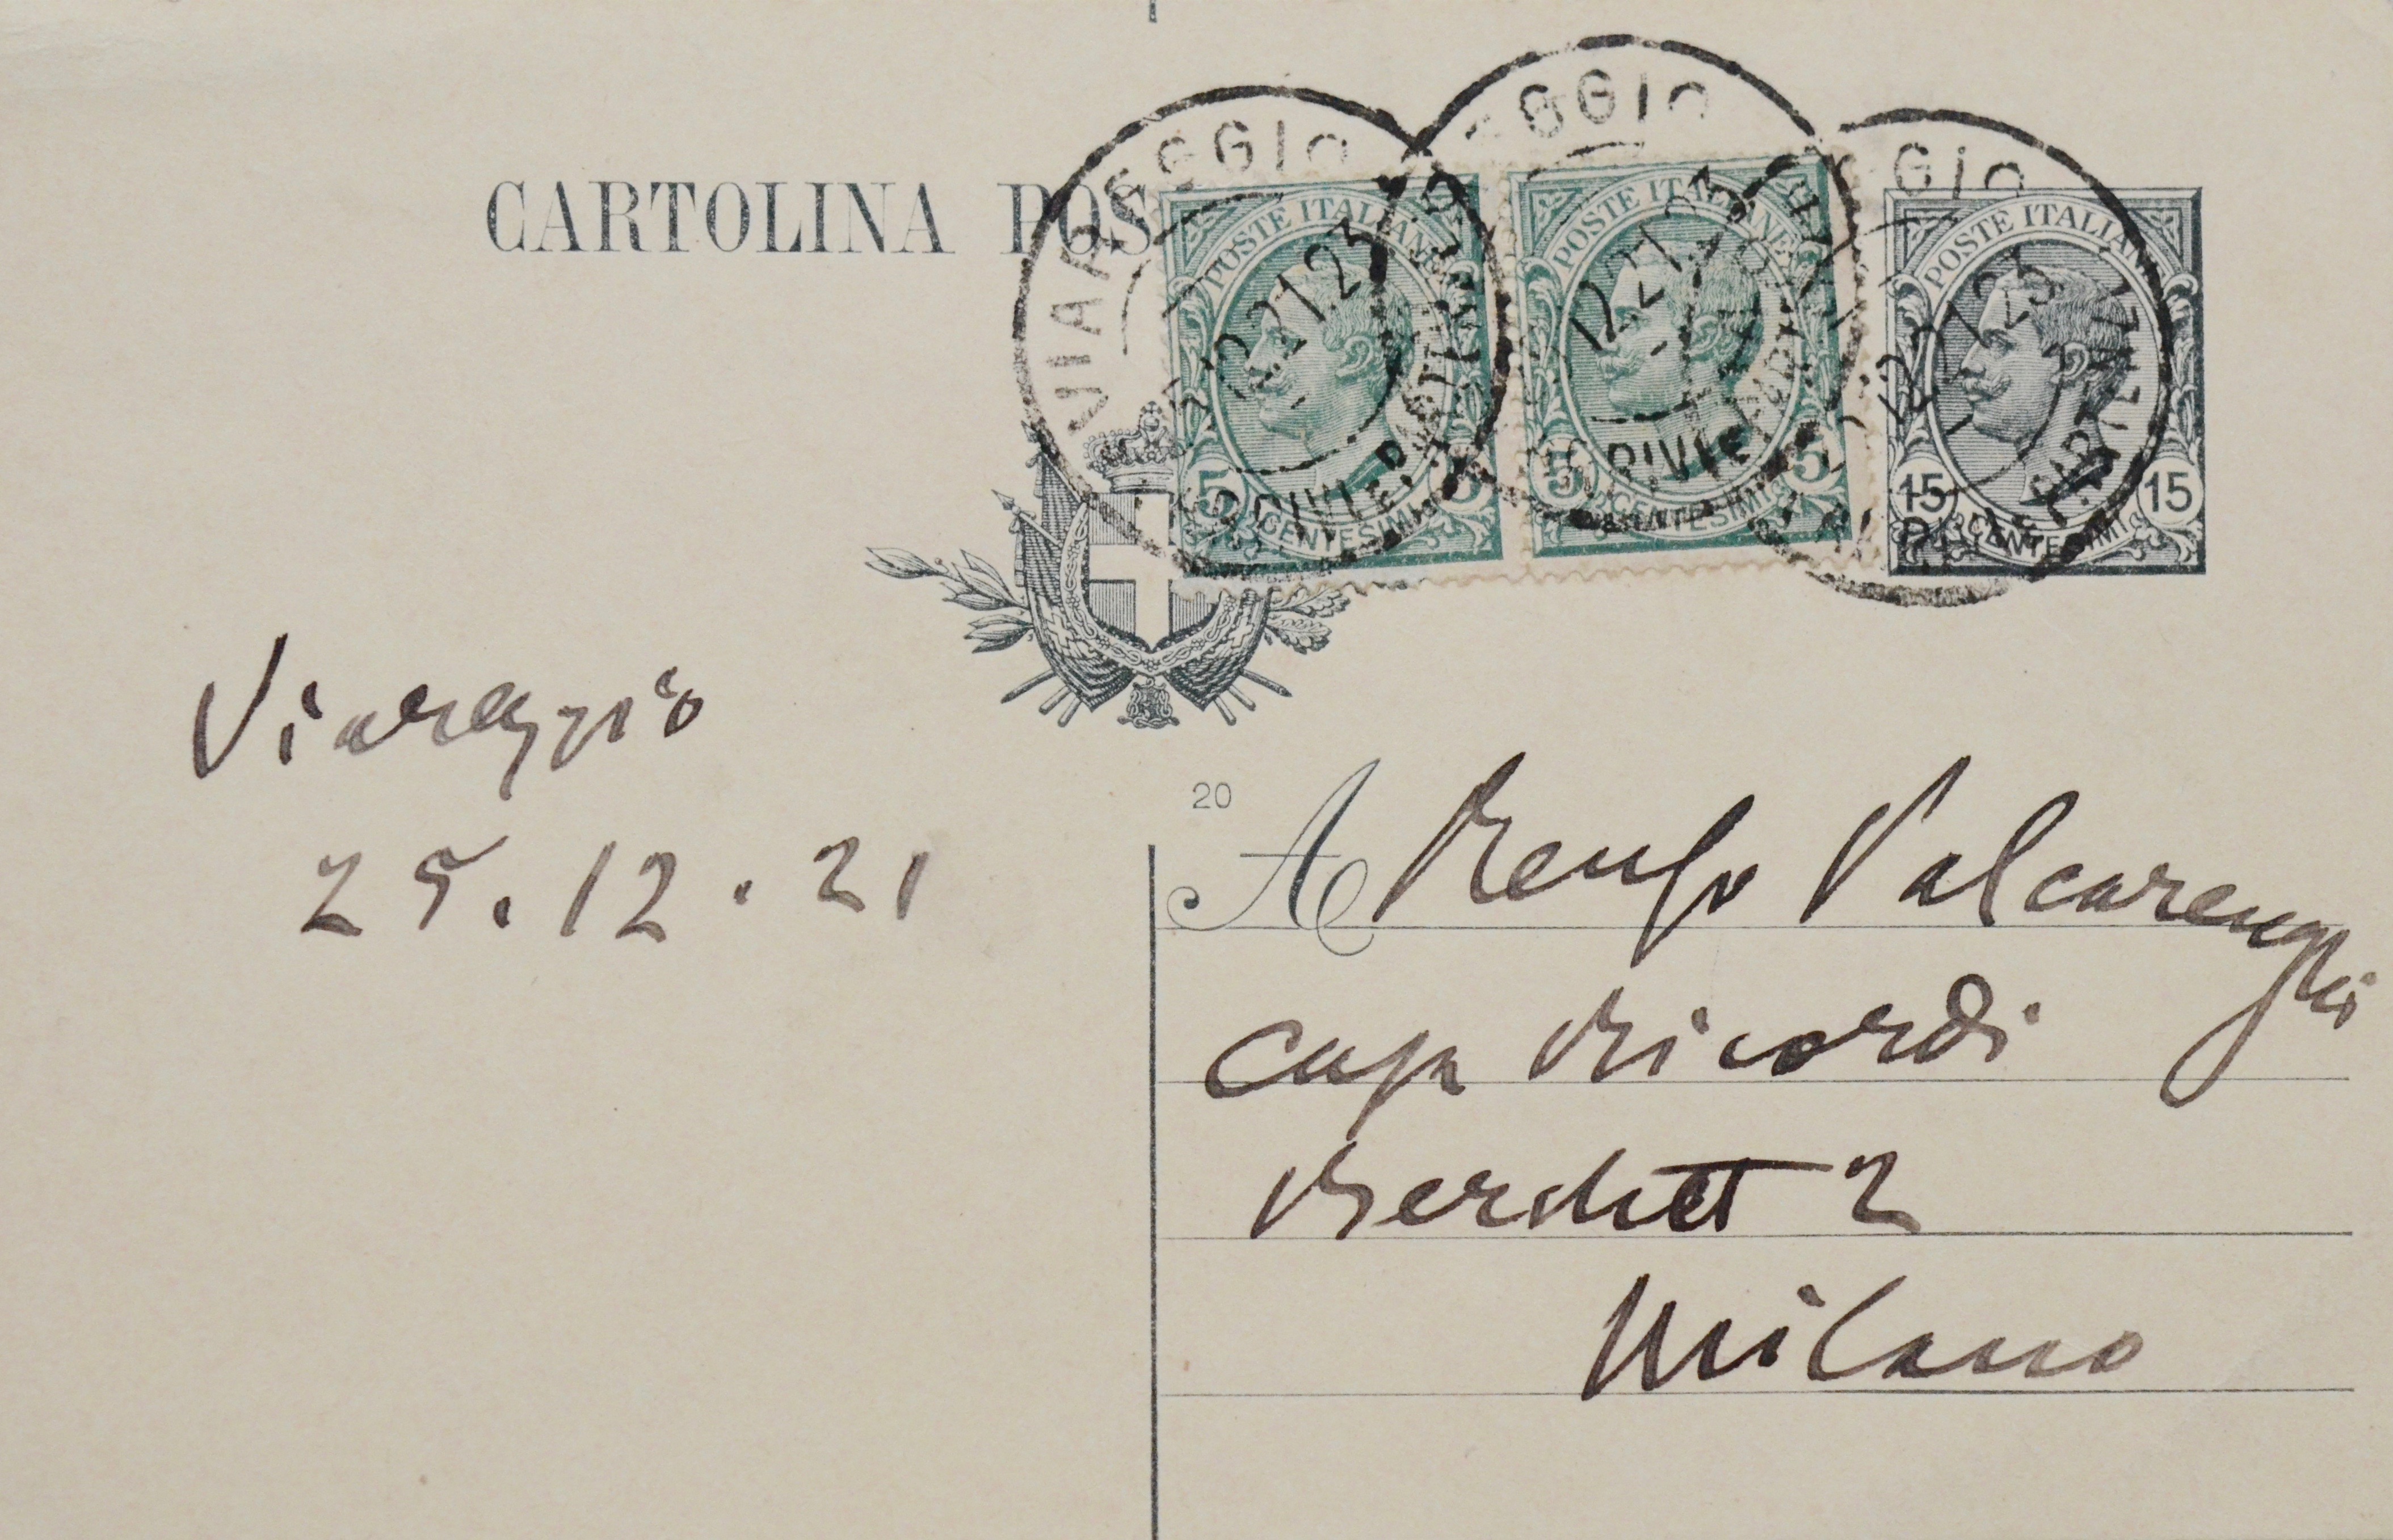 CARTOLINA POS
VIAREGGIO
12.21.23
POSTE ITALIANE
5
CENTESIMI
POSTE ITALIANE
5 5
CENTESIMI
12.21.23
POSTE ITALIANE
15 15
CENTESIMI
Viareggio
25.12.21
20
A Renzo Valcarenghi
casa Ricordi
Berchet 2
Milano